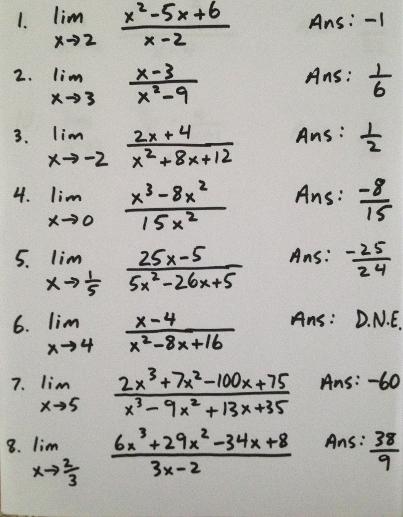 1. lim x→2 (x²-5x+6)/(x-2) Ans: -1
2. lim x→3 (x-3)/(x²-9) Ans: 1/6
3. lim x→-2 (2x+4)/(x²+8x+12) Ans: 1/2
4. lim x→0 (x³-8x²)/(15x²) Ans: -8/15
5. lim x→1/5 (25x-5)/(5x²-26x+5) Ans: -25/24
6. lim x→4 (x-4)/(x²-8x+16) Ans: D.N.E.
7. lim x→5 (2x³+7x²-100x+75)/(x³-9x²+13x+35) Ans: -60
8. lim x→2/3 (6x³+29x²-34x+8)/(3x-2) Ans: 38/9